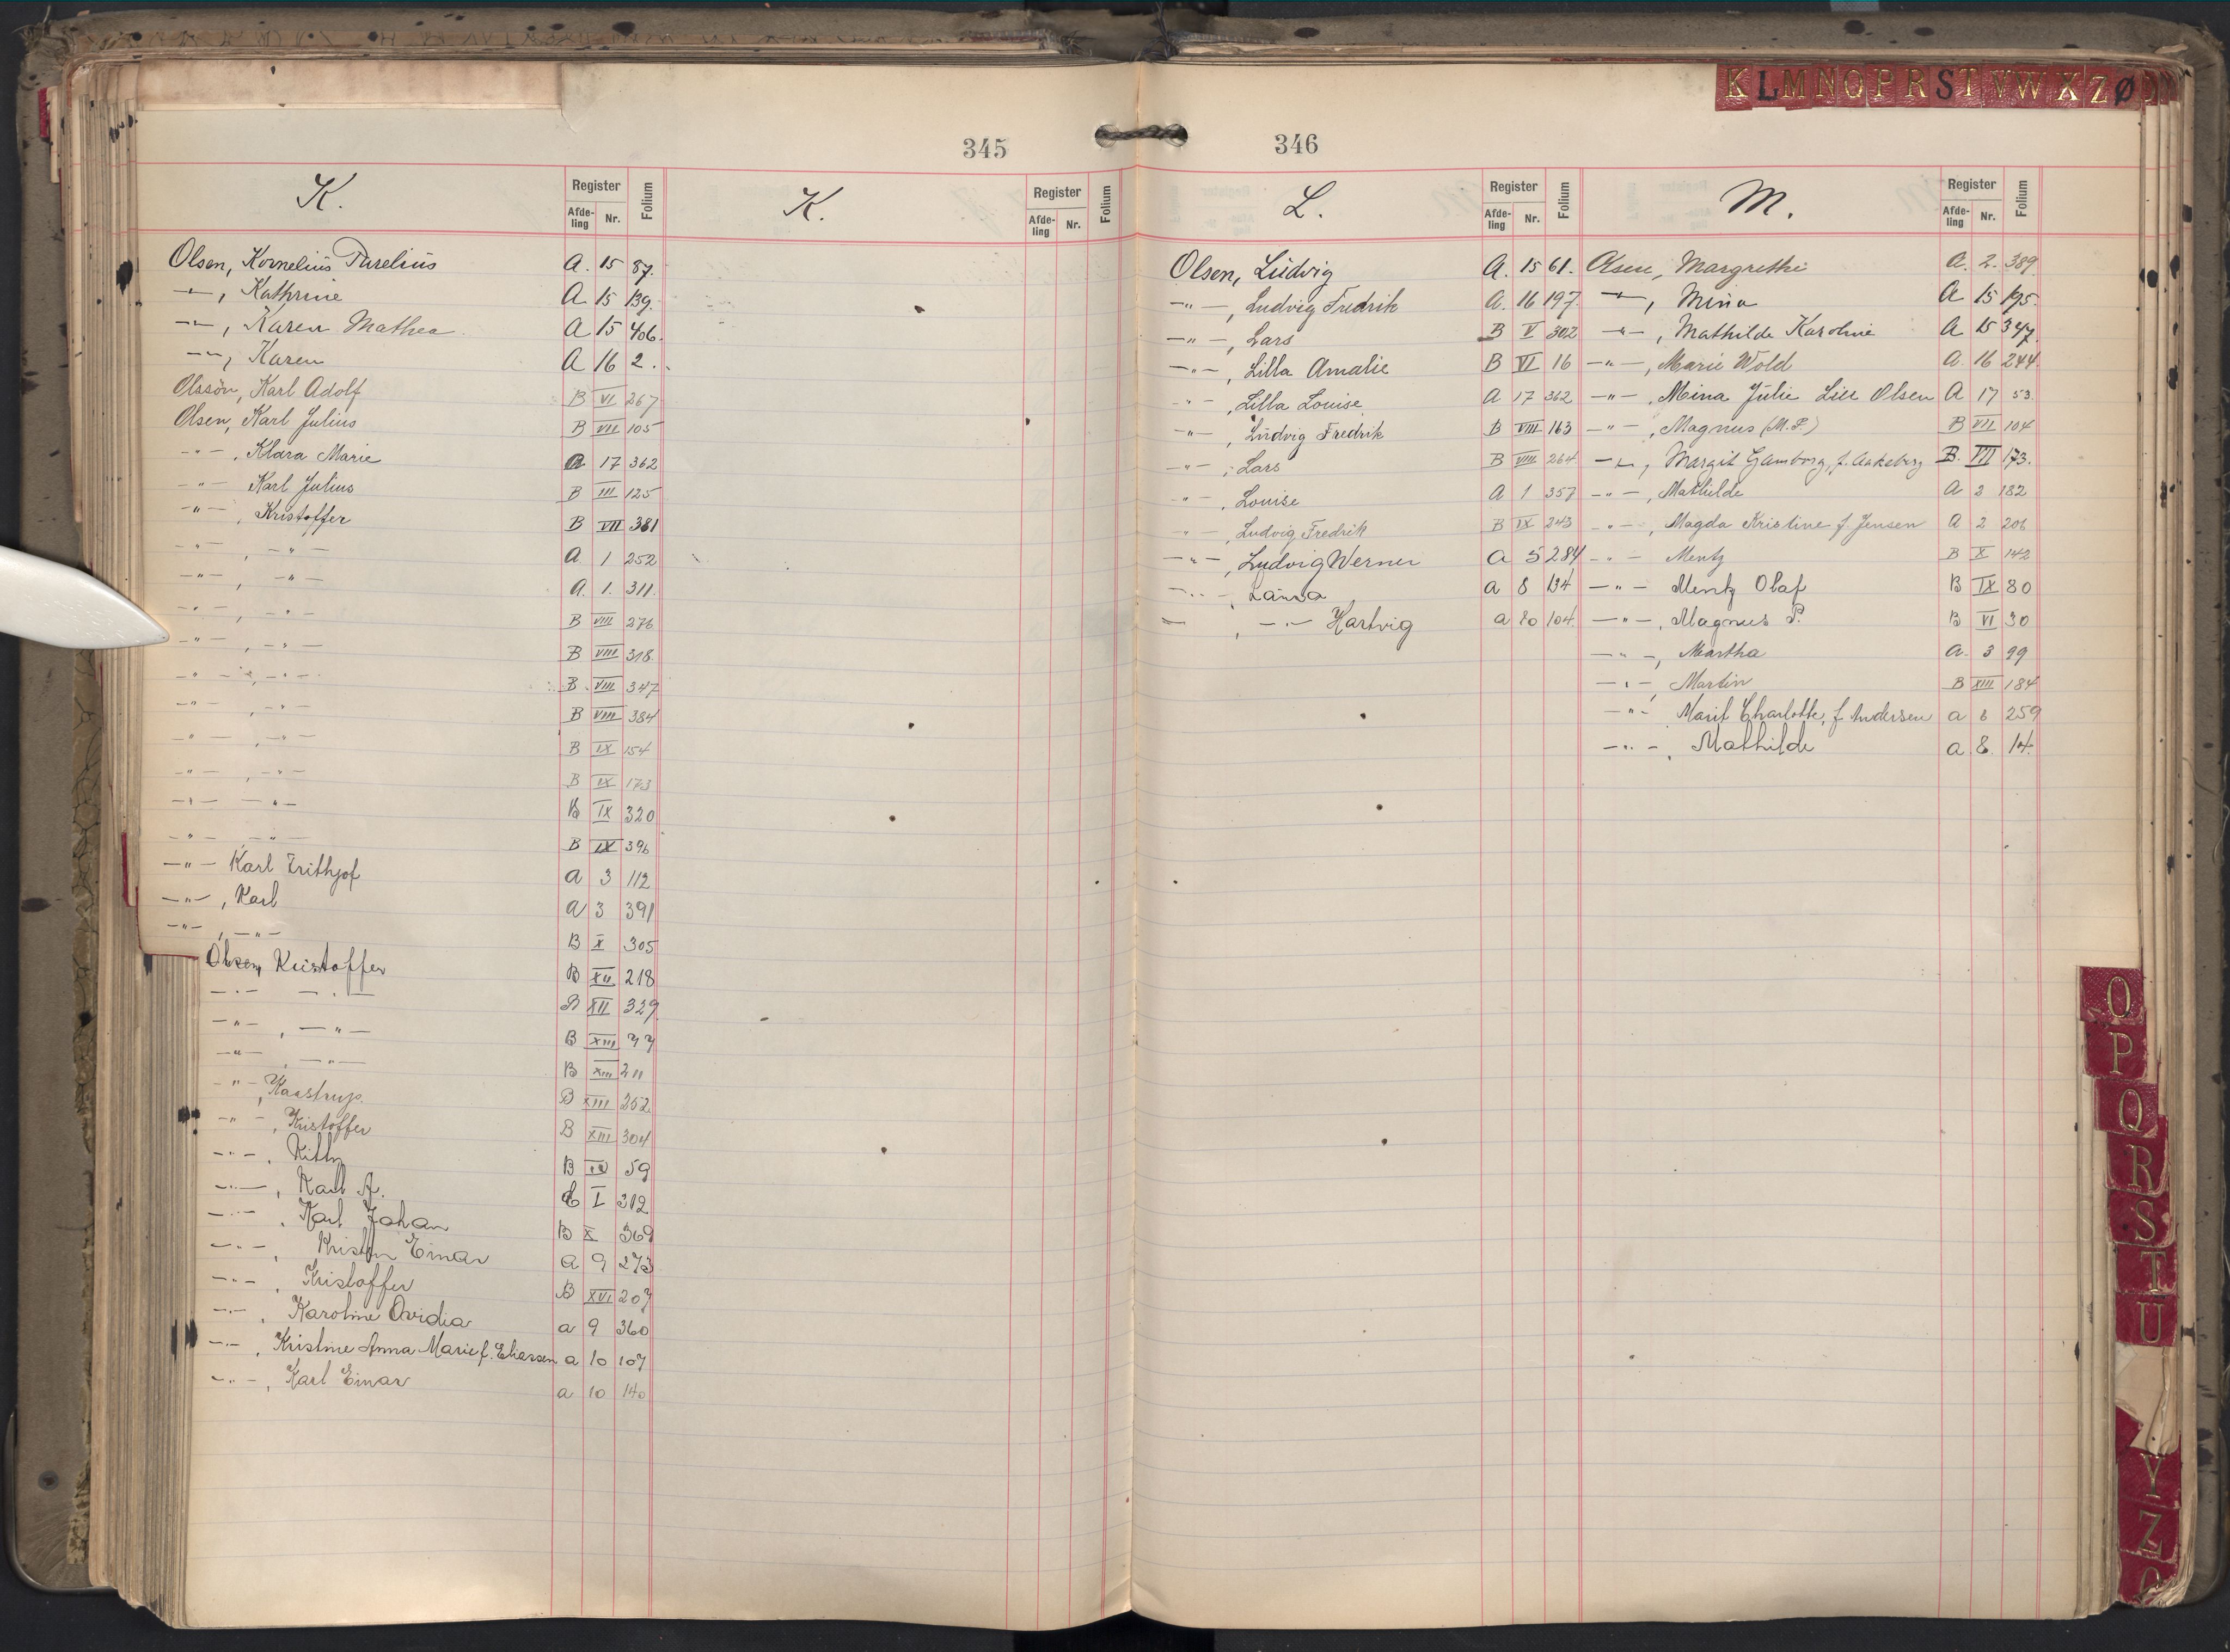 K L M N O P R S T V W X Z Ø
345
K.
Register
Afde-
ling
Nr.
Folium
K.
Register
Afde-
ling
Nr.
Folium
Olsen, Kornelius Threlius A. 15 87.
—"—, Kathrine A 15 139.
—"—, Karen Mathea A 15 406.
—"—, Karen A 16 2.
Olssön, Karl Adolf B VI 267
Olsen, Karl Julius B VII 105
—"—, Klara Marie A 17 362
—"— Karl Julius B III 125
—"—, Kristoffer B VII 381
—"—, —"— A 1 252
—"—, —"— A. 1. 311.
—"—, —"— B VIII 276
—"—, —"— B VIII 318.
—"—, —"— B VIII 347
—"—, —"— B VIII 384
—"—, —"— B IX 154
—"—, —"— B IX 173
—"— —"— B IX 320
—"— —"— B IX 396
—"— Karl Frithjof A 3 112
—"—, Karl A 3 391
—"—, —"— B X 305
Olsen, Kristoffer B XII 218
—"— —"— B XII 329.
—"—, —"— B XIII 77
—"—, —"— B XIII 211
—"—, Kaastrup. B XIII 252
—"—, Kristoffer B XIII 304
—"—, Kitty B 59
—"—, Karl A. I 312
—"—, Karl Johan B X 369
—"—, Einar a 9 273
—"—, Kristoffer B XVI 207
—"—, Karoline Ovidia a 9 360
—"—, Kristine Anna Marie f. Eliassen a 10 107
—"—, Karl Einar a 10 140
346
L.
Register
Afde-
ling
Nr.
Folium
Olsen, Ludvig A. 15 61.
—"—, Ludvig Fredrik A. 16 197.
—"—, Lars B V 302
—"—, Lilla Amalie B VI 16
—"—, Lilla Louise A 17 362
—"—, Ludvig Fredrik B VIII 163
—"—, Lars B VIII 264
—"—, Louise A 1 357
—"—, Ludvig Fredrik B IX 243
—"—, Ludvig Werner a 5 284
—"—, Laura a 8 134
—, —"— Hartvig a 10 104.
M.
Register
Afde-
ling
Nr.
Folium
Olsen, Margrethe A. 2. 389
—"—, Mina A 15 195.
—"—, Mathilde Karoline A 15 347.
—"—, Marie Wold A. 16 244.
—"—, Mina Julie Lill Olsen A 17 53.
—"—, Magnus (M.P.) B VII 104
—"—, Margit Gamborg, f. Aakeberg B. VII 173.
—"—, Mathilde A 2 182
—"—, Magda Kristine f. Jensen A 2 206
—"— Mentz B X 142
—"— Mentz Olaf B IX 80
—"—, Magnus P. B VI 30
—"—, Martha a. 3 99
—"—, Martin B XIII 184
—"— Marit Charlotte, f Andersen a 6 259
—"—, Mathilde a 8. 14.
O
P
Q
R
S
T
U
Y
Z